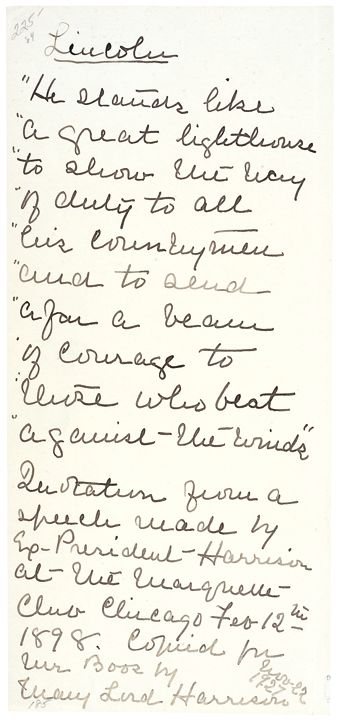 225
Lincoln
"He stands like
"a great lighthouse
"to show the way
"of duty to all
"his countrymen
"and to send
"afar a beam
"of courage to
"those who beat
"against the winds"
Quotation from a
speech made by
Ex-President Harrison
at the Marquette
Club Chicago Feb 12th
1898. Copied for
Mr Boos by
Mary Lord Harrison